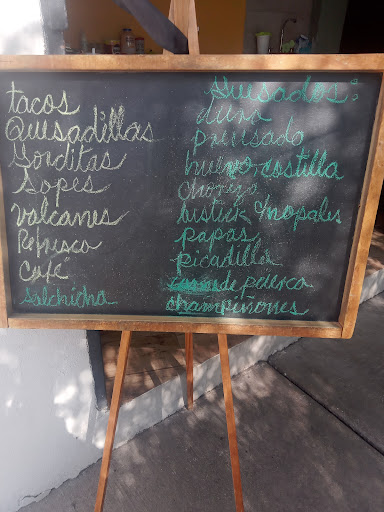 tacos
Quesadillas
Gorditas
Sopes
volcanes
Refresco
Café
Salchicha
Guisados:
dura
prensado
huevo costilla
chorizo
bisteck y nopales
papas
picadilla
de puerco
champiñones